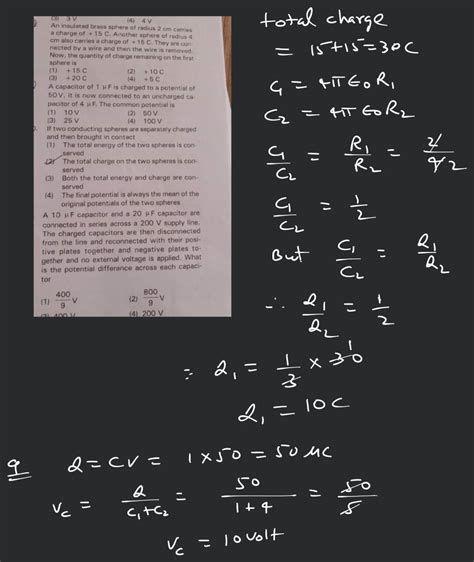 (3) 3 V (4) 4 V
An insulated brass sphere of radius 2 cm carries
a charge of + 15 C. Another sphere of radius 4
cm also carries a charge of + 15 C. They are con-
nected by a wire and then the wire is removed.
Now, the quantity of charge remaining on the first
sphere is
(1) + 15 C (2) + 10 C
(3) + 20 C (4) + 5 C
A capacitor of 1 μF is charged to a potential of
50 V. It is now connected to an uncharged ca-
pacitor of 4 μF. The common potential is
(1) 10 V (2) 50 V
(3) 25 V (4) 100 V
If two conducting spheres are separately charged
and then brought in contact
(1) The total energy of the two spheres is con-
served
(2) The total charge on the two spheres is con-
served
(3) Both the total energy and charge are con-
served
(4) The final potential is always the mean of the
original potentials of the two spheres
A 10 μF capacitor and a 20 μF capacitor are
connected in series across a 200 V supply line.
The charged capacitors are then disconnected
from the line and reconnected with their posi-
tive plates together and negative plates to-
gether and no external voltage is applied. What
is the potential difference across each capaci-
tor
(1) 400/9 V (2) 800/9 V
(3) 400 V (4) 200 V
total charge
= 15+15 = 30C
C1 = 4π ε0 R1
C2 = 4π ε0 R2
C1/C2 = R1/R2 = 2/4 2
C1/C2 = 1/2
But C1/C2 = Q1/Q2
∴ Q1/Q2 = 1/2
= Q1 = 1/3 × 30
Q1 = 10C
9 Q = CV = 1 × 50 = 50 μC
Vc = Q/C1+C2 = 50/1+4 = 50/5
Vc = 10 volt